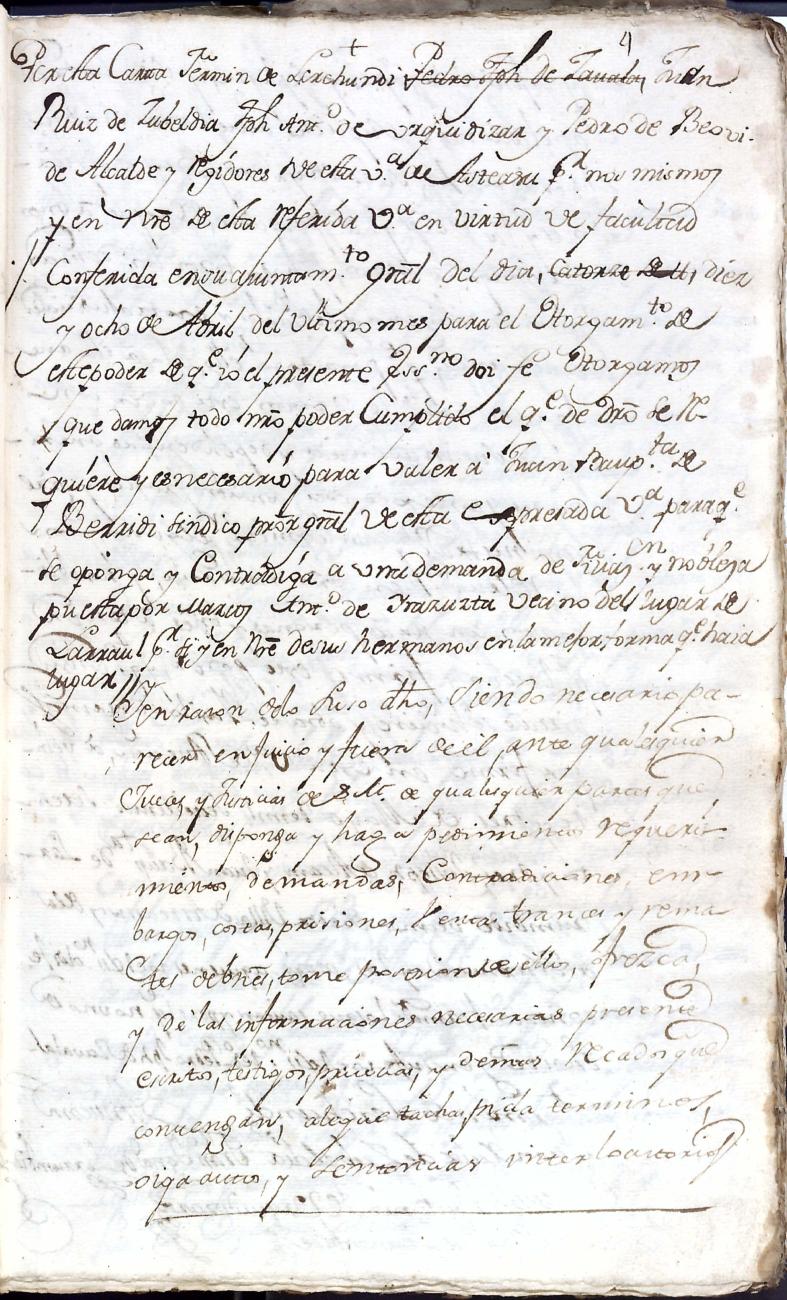 4
+
Por esta Carta Fermin de Lerchundi Pedro Jph de Zavala, Juan
Ruiz de Zubeldia Jph Ant.º de Urquidizar y Pedro de Beovi-
de Alcalde y regidores de esta v.ª de Asteasu p.ª nos mismos
y en nre de esta referida v.ª en virtud de facultad
Conferida en su aiuntam.to gral del dia, Catorze de diez
y ocho de Abril del ultimo mes para el Otorgam.to de
este poder de q.e io el presente Ess.no doi fe Otorgamos
y que damos todo nro poder Cumplido el q.e de dro se re-
quiere y es necesario para valer á Juan Baup.ta de
Berridi sindico pror gral de esta espresada v.ª para q.e
se oponga y Contradiga a una demanda de y nobleza
puesta por Marcos Ant.º de Yrazuzta vecino del lugar de
Larraul p.ª si y en nre de sus hermanos en la mejor forma q.e haia
lugar //
Y en razon de lo suso dho, siendo necesario pa-
recer en juicio y fuera de el ante qualesquier
Jueces, y Justicias de S. M. de qualesquier partes que
sean, disponga y haga pedimientos requeri-
mientos, demandas, Contradiciones, em-
bargos, costas, prisiones, Ventas, trances y rema
tes de bnes, tome posesion de ellos, ofrezca,
y dé las informaciones necesarias presente
escritos, testigos, pruevas, y demas recados que
convengan, alegue tacha, pida terminos,
oiga autos, y Sentencias interlocutorias